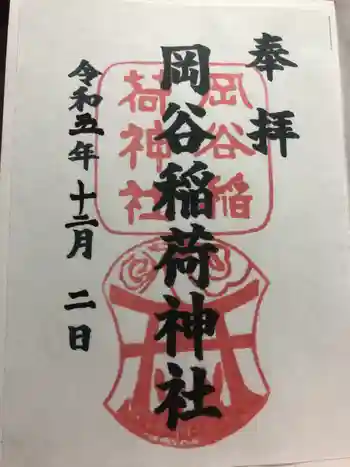 奉拝
岡谷稲荷神社
岡谷稲
荷神社
令和五年 十二月 二日